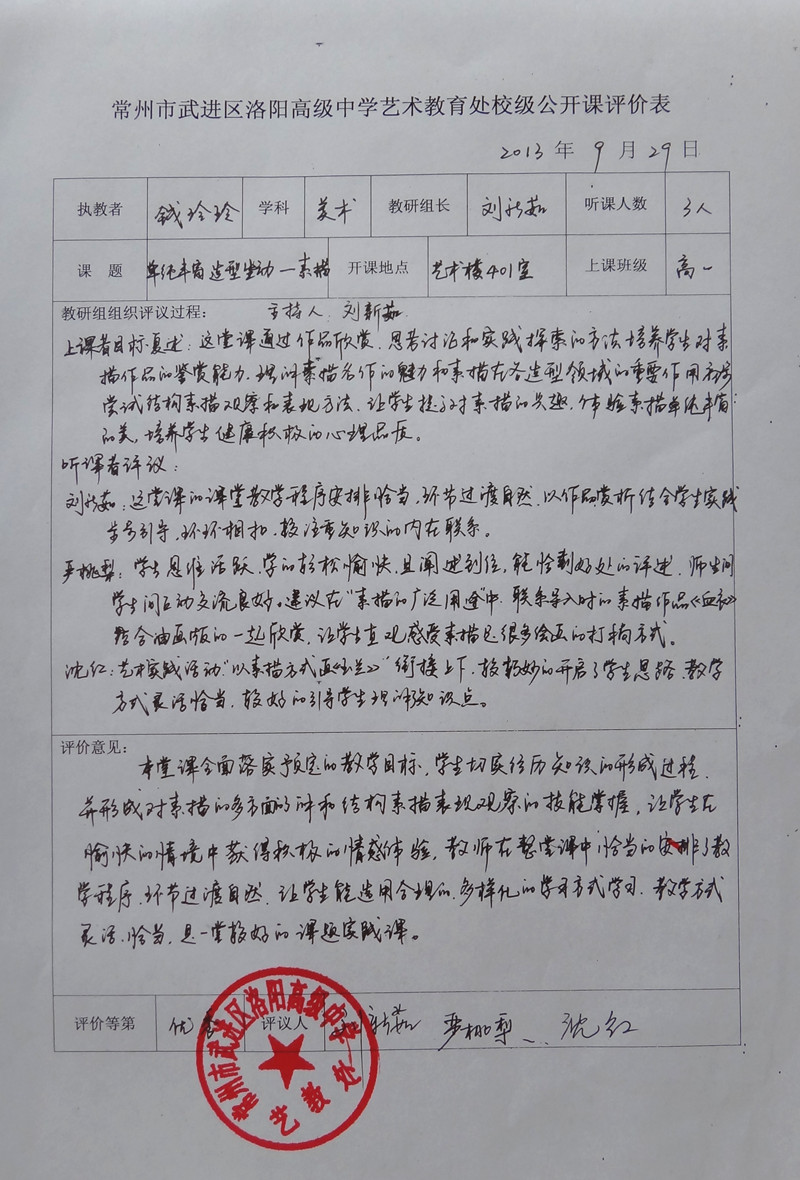 常州市武进区洛阳高级中学艺术教育处校级公开课评价表
2013 年 9 月 29 日
执教者 钱玲玲 学科 美术 教研组长 刘新茹 听课人数 3人
课 题 单纯丰富 造型生动—素描 开课地点 艺术楼401室 上课班级 高一
教研组组织评议过程： 主持人 刘新茹
上课者目标复述：这堂课通过作品欣赏、思考讨论和实践探索的方法培养学生对素
描作品的鉴赏能力，理解素描名作的魅力和素描在各造型领域的重要作用
尝试结构素描观察和表现方法，让学生提高对素描的兴趣，体验素描单纯丰富
的美，培养学生健康积极的心理品质。
听课者评议：
刘新茹：这堂课的课堂教学程序安排恰当，环节过渡自然，以作品赏析结合学生实践
引导，环环相扣，较注重知识的内在联系。
严桃梨：学生思维活跃，学的轻松愉快，且阐述到位，能恰到好处的评述，师生间
学生间互动交流良好。建议在“素描的广泛用途”中，联系导入时的素描作品《血衣》
结合油画版的一起欣赏，让学生直观感受素描是很多绘画的打稿方式。
沈红：艺术实践活动“以素描方式画《玉兰》”衔接上下，较巧妙的开启了学生思路，教学
方式灵活恰当，较好的引导学生理解知识点。
评价意见：
本堂课全面落实预定的教学目标，学生切实经历知识的形成过程，
并形成对素描的多方面了解和结构素描表现观察的技能掌握，让学生在
愉快的情境中获得积极的情感体验，教师在整堂课中恰当的安排了教
学程序，环节过渡自然，让学生能选用合理的、多样化的学习方式学习，教学方式
灵活、恰当，是一堂较好的课题实践课。
评价等第 优秀 评议人 刘新茹 严桃梨 沈红
常州市武进区洛阳高级中学
艺教处